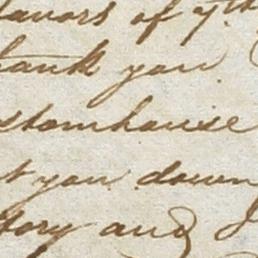 favors of 7th
thank you
stomhouse
t you down
tory and I